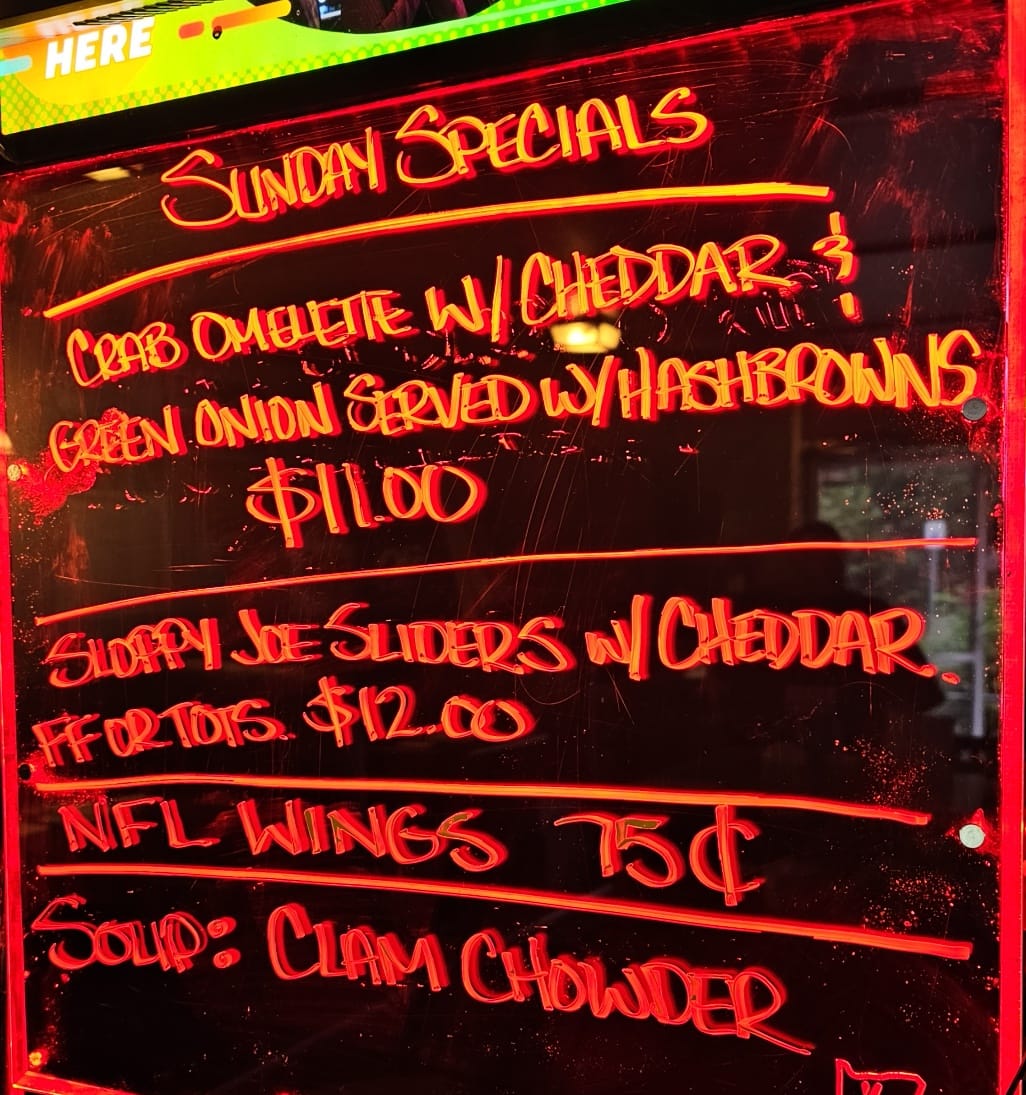 HERE
SUNDAY SPECIALS
CRAB OMELETTE W/ CHEDDAR &
GREEN ONION SERVED W/ HASHBROWNS
$11.00
SLOPPY JOE SLIDERS W/ CHEDDAR.
FF OR TOTS. $12.00
NFL WINGS 75¢
SOUP: CLAM CHOWDER